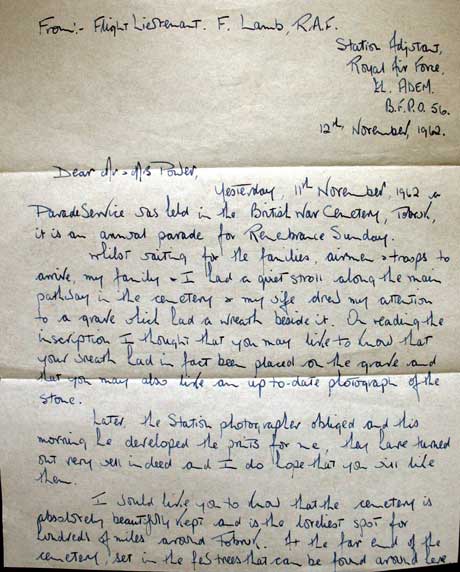 From:- Flight Lieutenant. F. Lamb, R.A.F.
Station Adjutant,
Royal Air Force,
EL ADEM.
B.F.P.O. 56.
12th November, 1962.
Dear Mr & Mrs Power,
Yesterday, 11th November, 1962 a
Parade Service was held in the British War Cemetery, Tobruk,
it is an annual parade for Remembrance Sunday.
Whilst waiting for the families, airmen & troops to
arrive, my family & I had a quiet stroll along the main
pathway in the cemetery & my wife drew my attention
to a grave which had a wreath beside it. On reading the
inscription I thought that you may like to know that
your wreath had in fact been placed on the grave and
that you may also like an up-to-date photograph of the
stone.
Later, the Station photographer obliged and this
morning he developed the prints for me, they have turned
out very well indeed and I do hope that you will like
them.
I would like you to know that the cemetery is
absolutely beautifully kept and is the loveliest spot for
hundreds of miles around Tobruk. At the far end of the
cemetery, set in the few trees that can be found around here